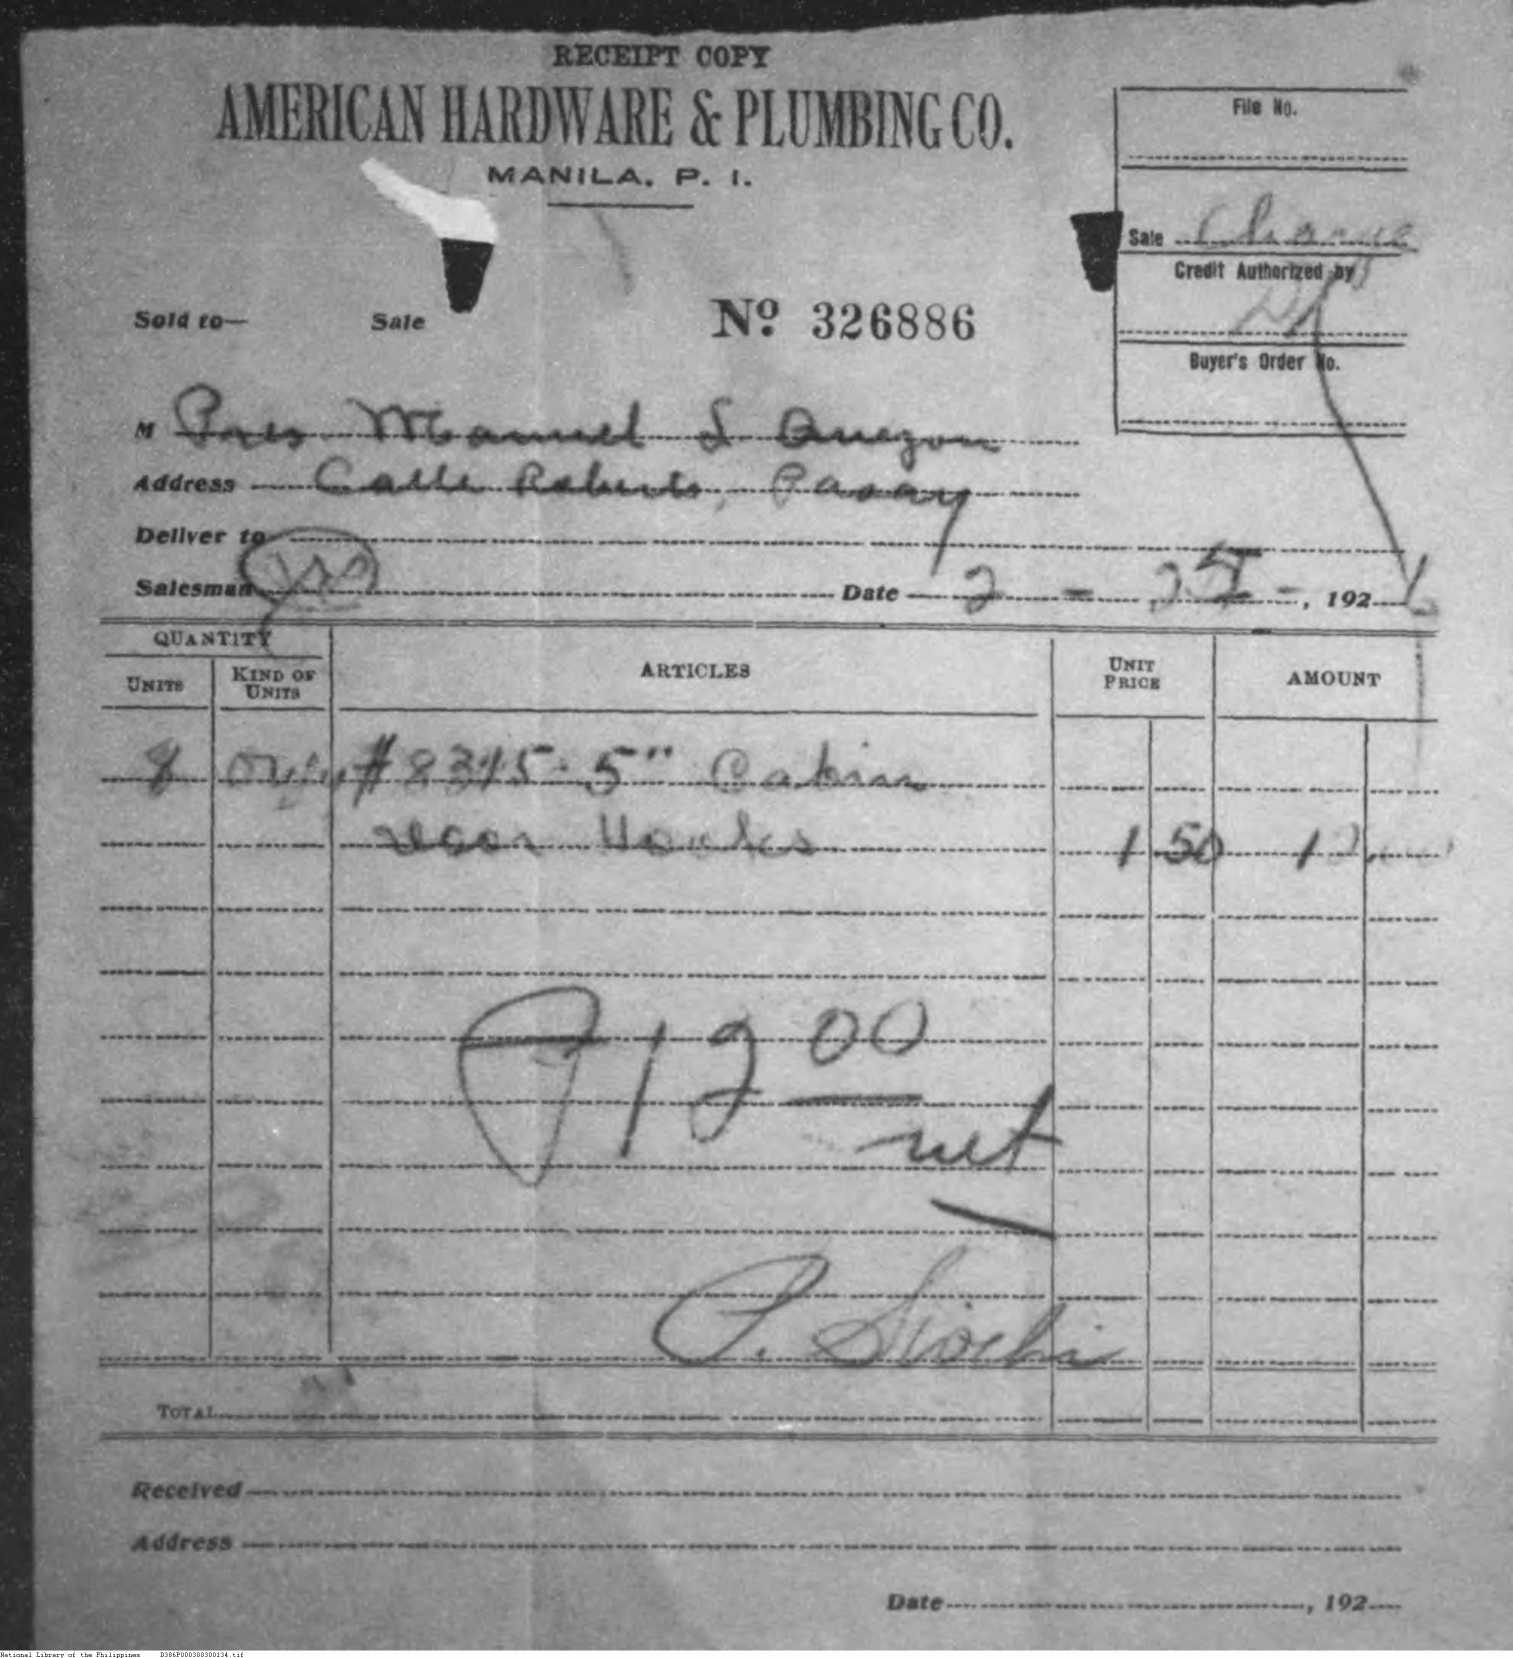 RECEIPT COPY
AMERICAN HARDWARE & PLUMBING CO.
MANILA, P. I.
File No.
Sale Charge
Credit Authorized by
Buyer's Order No.
Sold to— Sale Nº 326886
M Pres Manuel L Quezon
Address Calle Roberts, Pasay
Deliver to
Salesman Date 2 - 25 -, 1926
QUANTITY
UNITS KIND OF UNITS ARTICLES UNIT PRICE AMOUNT
8 5" Cabin
door Hooks 1 50 12
₱12 00
net
P. Siochi
TOTAL
Received
Address
Date , 192
National Library of the Philippines D386P000388300134.tif